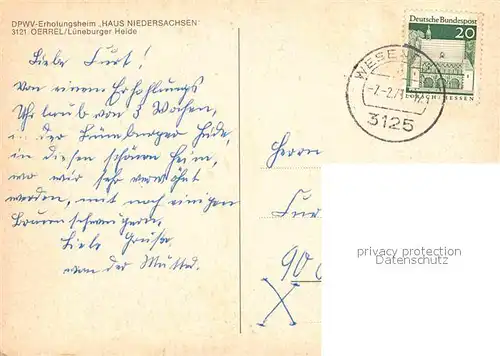 DPWV-Erholungsheim „HAUS NIEDERSACHSEN"
3121 OERREL/Lüneburger Heide
Liebe Curt!
Von einem Erholungs
Uhrlaub von 3 Wochen,
in der Lüneburger Heide,
in diesen schönen Heim,
wo wir sehr verwöhnt
werden, mit noch einigen
Braunschweigern.
Liebe Grüße
von der Mutter.
Deutsche Bundespost
20
LORSCH/HESSEN
WESE
-7.-2.7
3125
Herrn
Cur
90
privacy protection
Datenschutz